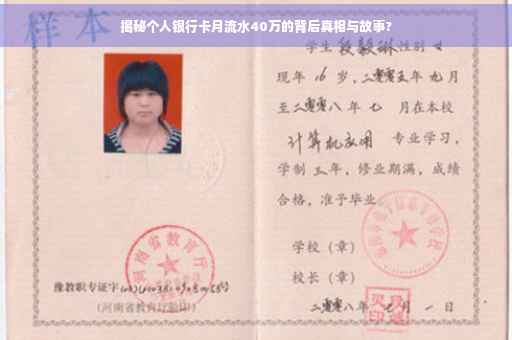 样本
揭秘个人银行卡月流水40万的背后真相与故事?
学生 段毅琳 性别 女
现年 16 岁,二零零五年 九 月
至二零零八 年 七 月在本校
计算机应用 专业学习,
学制 三 年,修业期满,成绩
合格,准予毕业
学校(章)
校长(章)
河南省教育厅
豫教职专证字
(河南省教育厅验印)
二零零八年 月 一 日